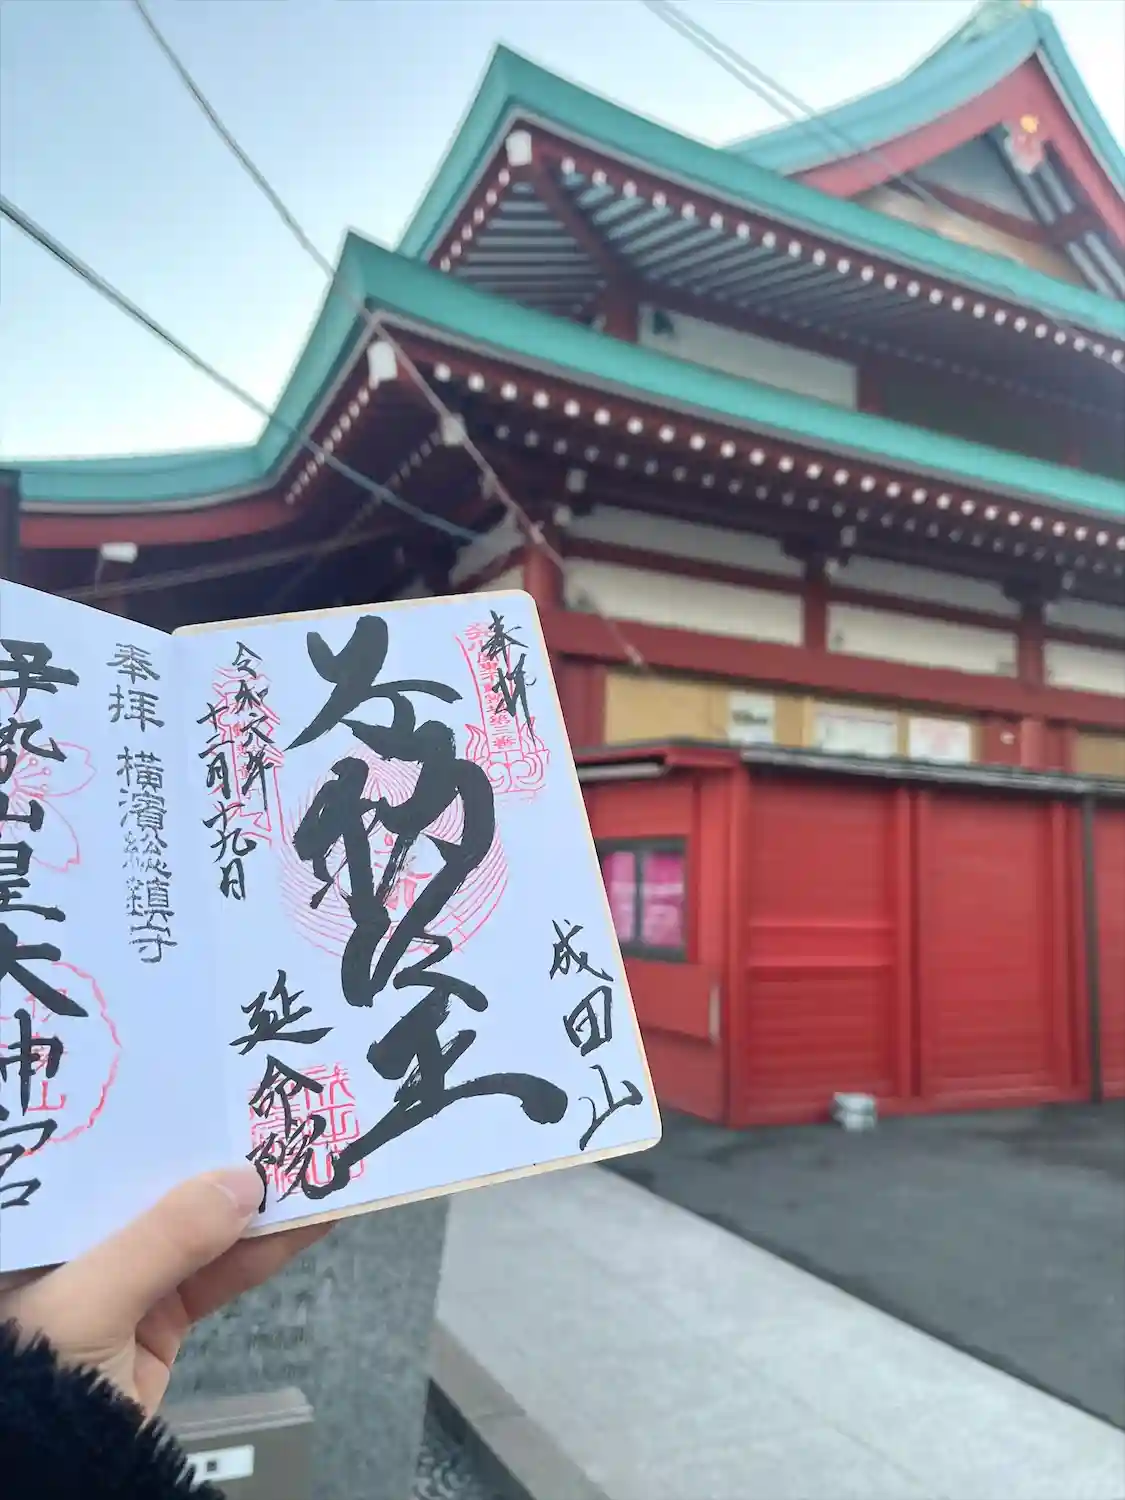 奉拝
不動明王
成田山
延命院
令和六年
十二月十九日
奉拝
横濱総鎮守
伊勢山皇大神宮